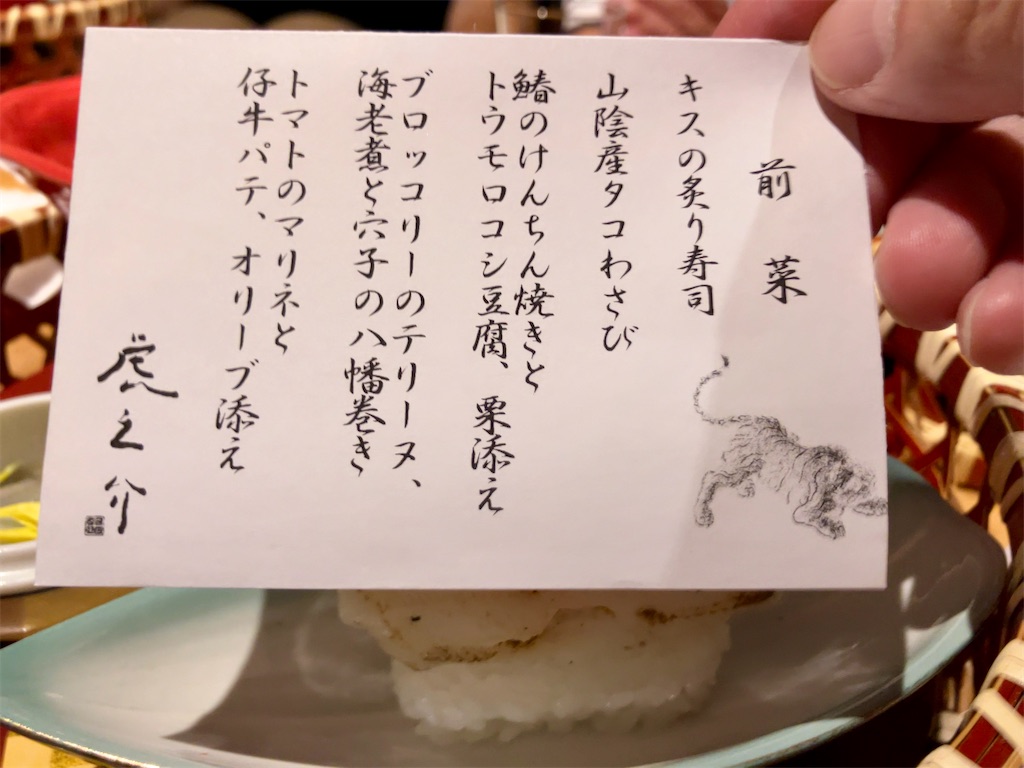 前菜
キスの炙り寿司
山陰産タコわさび
鰆のけんちん焼きと
トウモロコシ豆腐、栗添え
ブロッコリーのテリーヌ、
海老煮と穴子の八幡巻き
トマトのマリネと
仔牛パテ、オリーブ添え
虎之介